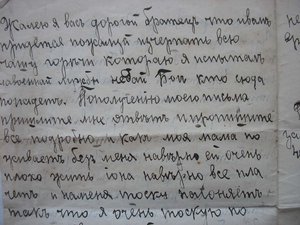 Жалею я вас дорогой братец что и вам
придется пожалуй изчерпать всю
чашу горьти которою я испытал
кто сюда
попадет. Пополучению моего письма
пришлите мне ответ и пропишите
все подробно, и как моя мама по
живает без меня наверно ей очень
плохо жить и она наверно все пла
чет и наменя тоски нагоняет
так что я очень тоскую по